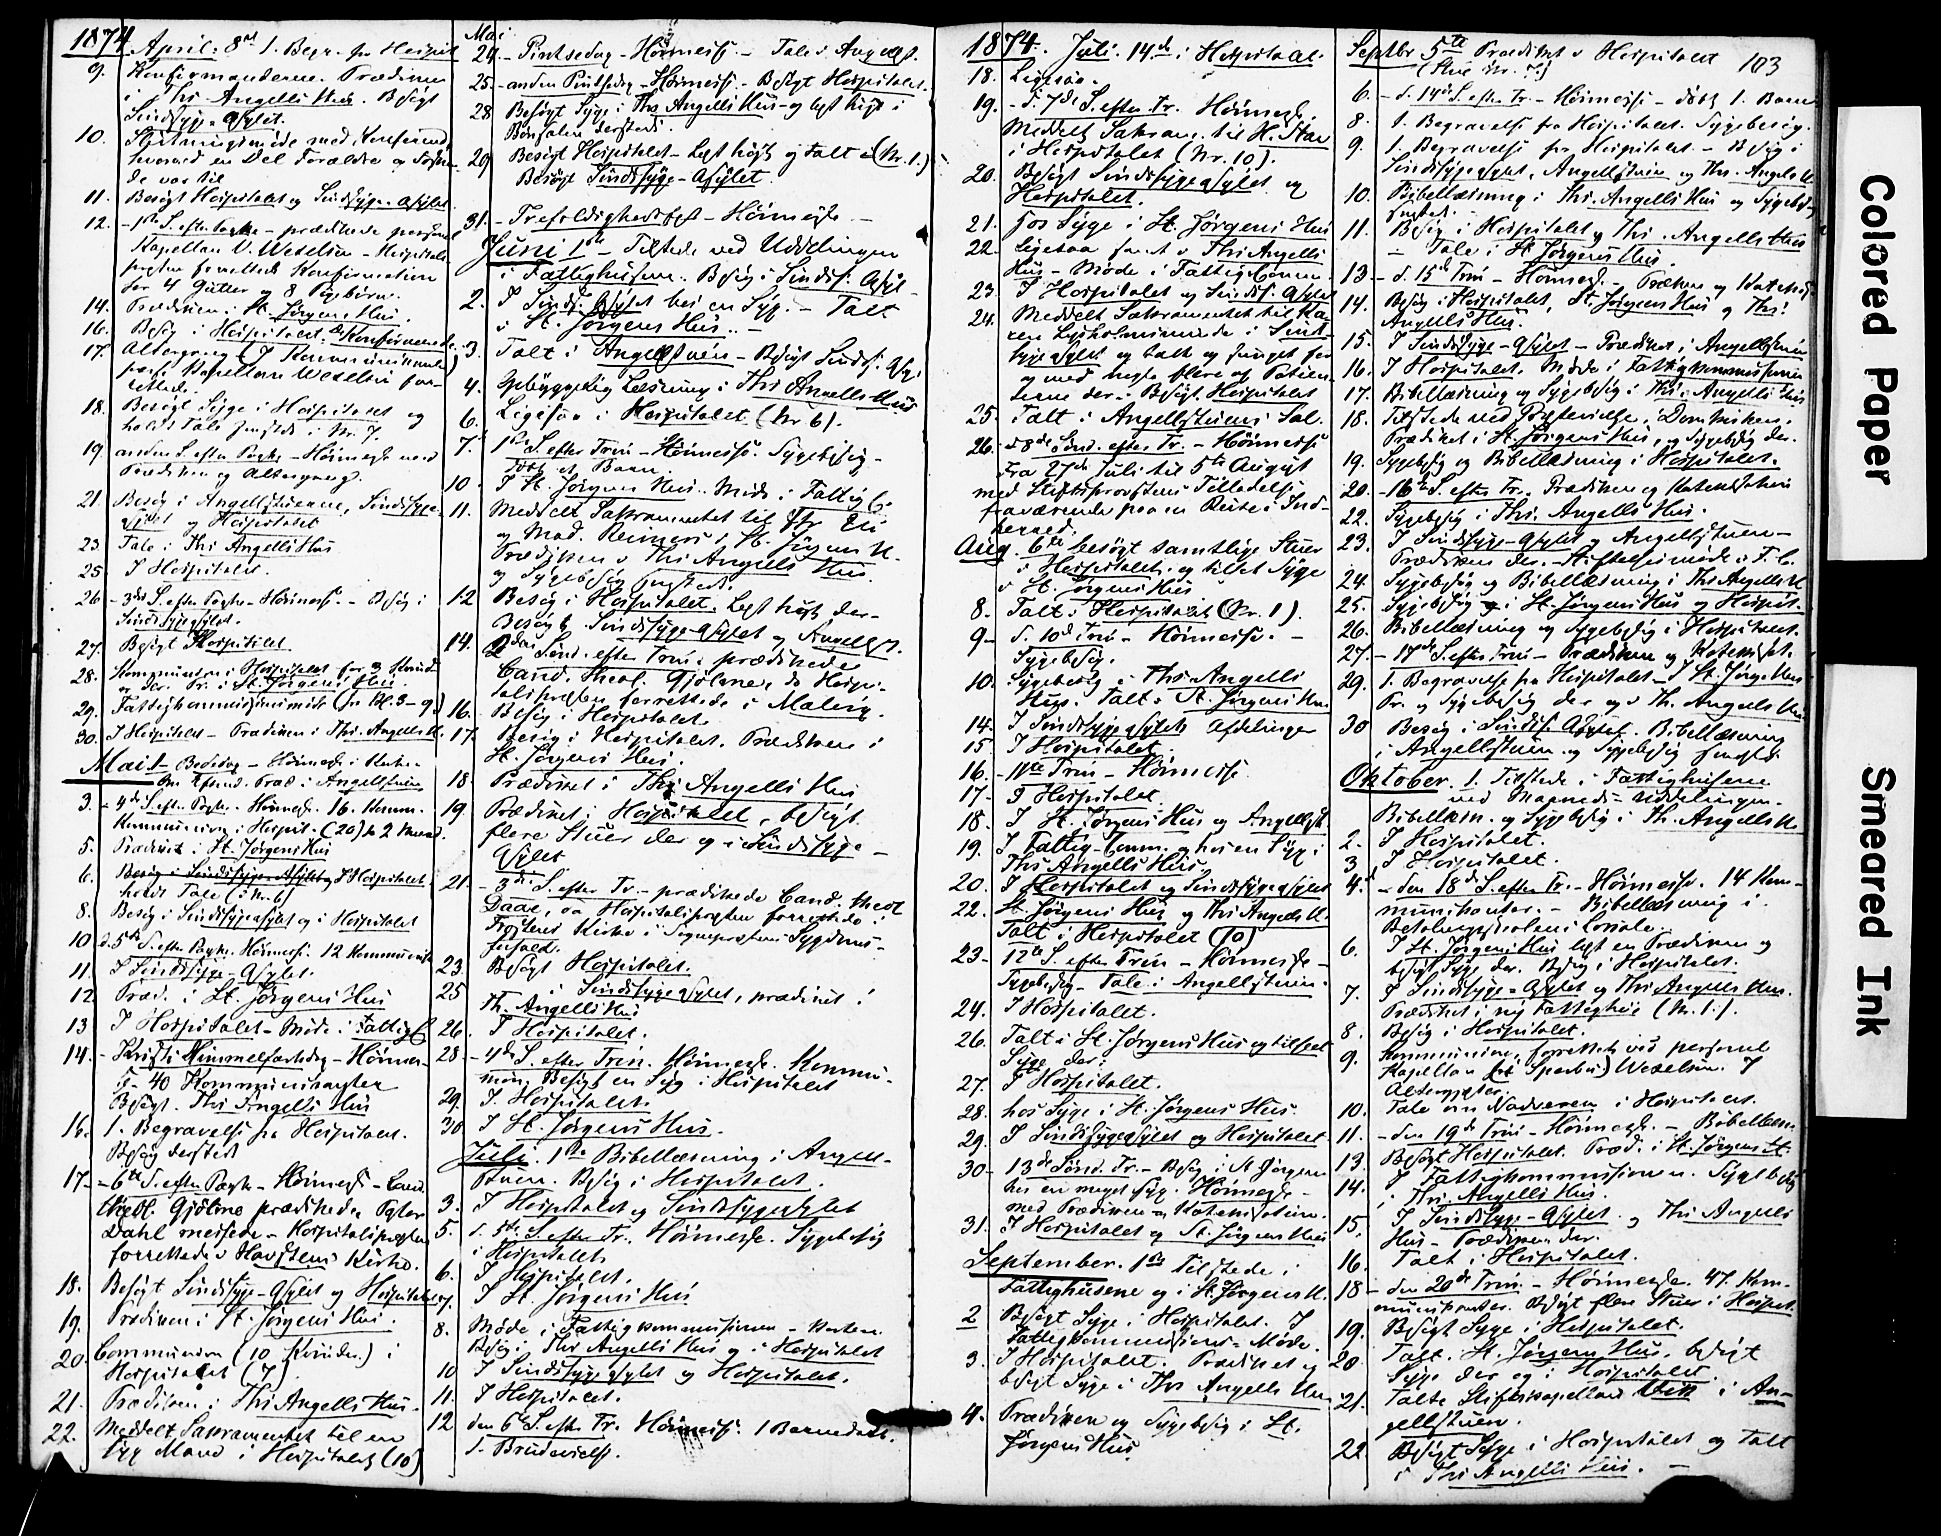 1874 April: 8de 1. Begr. fra Hospit
9. Konfirmanderne. Prædiken
i Ths. Angells Hus. Besøgt
Sindssyge-Asylet.
10. med Konfirmand.
hvorved en Del Forældre og
de var til
11. Besøgt Hospitalet og Sindssyge-Asylet
12. - 1ste S. efter Paaske - prædikede personel
Kapellan V. Wexelsen - Hospitals-
præsten forrettede Konfirmation
for 4 Gutter og 8 Pigebørn.
14. Prædiken i St. Jørgens Hus.
16. Besøg i Hospitalet. Konfirmerede
17. Altergang
pers. Kapellan Wexelsen for-
rettede.
18. Besøgt Syge i Hospitalet og
holdt Tale i Nr. 7.
19 anden S. efter Paaske - Høimesse med
Prædiken og Altergang.
21. Besøg i Angellstuerne, Sindssyge-
Asylet og Hospitalet
23. Tale i Ths. Angells Hus
25. I Hospitalet.
26 - 3die S. efter Paaske - Høimesse. - Besøg i
Sindssygeasylet.
27. Besøgt Hospitalet
28. Kommunion i Hospitalet for 3 Kvind.
Pr. i St. Jørgens Hus
29. Fattigkommissionsmøde (fr. Kl. 3-9)
30. I Hospitalet - Prædiken i Ths. Angells H.
Mai 1 Bededag - Høimesse i
Præd. i Angellstuen
3. - 4de S. efter Paaske. Høimesse. 16. Komm.
Kommunion i Hospit. (26) for 2 Mænd.
5. Prædiket i St. Jørgens Hus
6. Besøg i Sindssyge-Asylet og I Hospitalet
holdt Tale (i Nr. 6)
8. Besøg i Sindssygeasylet og i Hospitalet
10 d. 5te S. efter Paaske. Høimesse. 12 Kommunik.
11. I Sindssyge-Asylet.
12 Præd. i St. Jørgens Hus
13 I Hospitalet - Møde i Fattig C.
14. - Kristi Himmelfartsdag - Høimes-
se - 40 Kommunikanter
Besøgt. Ths. Angells Hus
16. 1. Begravelse fra Hospitalet.
Besøg dersteds
17. - 6te S. efter Paaske - Høimesse - Cand.
theol. Gjølme prædikede Pastor
Dahl messede - Hospitalspræsten
forrettede i Havstens Kirke.
18. Besøgt Sindssyge-Asylet og Hospitalet
19. Prædiken i St. Jørgens Hus.
20. Communion (10 Kvinder.) i
Hospitalet (7)
21. Prædiken i Ths. Angells Hus.
22. Meddelt Sakramentet til en
syg Mand i Hospitalet (10)
Mai
24. - Pintsedag - Høimesse - Tale i Angellst.
25. - anden Pintsedag - Høimesse. - Besøgt Hospitalet.
28 Besøgt Syge i Ths. Angells Hus - og læst høit i
Bønsalen dersteds.
29 Besøgt Hospitalet - Læst høit og talt i (Nr. 1.)
Besøgt Sindssyge-Asylet.
31. - Trefoldighedsfest - Høimesse -
Juni 1ste - Tilstede ved Uddelingen
i Fattighusene. Besøg i Sindss. Asyl-
2. I Sinds. Asylet hos en Syg. - Talt
i St. Jørgens Hus. -
3. Talt i Angellstuen - Besøgt Sindss. Asy.
4. Opbyggelig Læsning i Ths. Angells Hus
6. Ligesaa i Hospitalet (Nr 6).
7. 1ste S. efter Trin - Høimesse. Sygebesøg -
Døbt et Barn.
10. I St. Jørgens Hus. Møde i Fattig C.
11. Meddelt Sakramentet til Hr.
og Mad. Reimers i St. Jørgens H.
Prædiken i Ths. Angells Hus
og Sygebesøg
12 Besøg i Hospitalet. Læst høit der-
Besøgt Sindssyge-Asylet og Angellst.
14. 2den Sønd. efter Trin. prædikede
Cand. theol. Gjølme, da Hospi-
talspræsten forrettede i Malvig.
16. Besøg i Hospitalet.
17. Besøg i Hospitalet. Prædiken i
St. Jørgens Hus.
18 Prædiket i Ths. Angells Hus
19. Prædiket i Hospitalet, besøgt
flere Stuer der og i Sindssyge-
Asylet
21. - 3die S. efter Tr. - prædikede Cand. theol
Daae, da Hospitalspræsten forrettede i
Frostens Kirke i Sognepræstens Sygdoms-
forfald.
23. Besøgt Hospitalet.
25 i Sindssygeasylet, prædiket i
Th. Angells Hus
26. I Hospitalet.
28 - 4de S. efter Trin. Høimesse. Kommu-
nion. Besøgt en Syg i Hospitalet
29. I Hospitalet
30 I St. Jørgens Hus.
Juli. 1ste Bibellæsning i Angell-
stuen. Besøg i Hospitalet.
3. I Hospitalet og Sindssygeasylet
5. d. 5te S. efter Tr. Høimesse. Sygebesøg
i Hospitalet
6. I Hospitalet.
7. I St. Jørgens Hus
8. Møde i Fattigkommissionen -
Besøg i Ths. Angells Hus og i Hospitalet
10 I Sindssygeasylet og Hospitalet.
11. I Hospitalet.
12 den 6te S. efter Tr. Høimesse. 1 Barnedaab.
1. Brudevielse.
1874. Juli. 14de i Hospitalet.
18. Ligesaa.
19. - d. 7de S. efter Tr. Høimesse
Meddelt Sakram. til
i Hospitalet (Nr. 10).
20. Besøgt Sindssygeasylet og
Hospitalet.
21. Hos Syge i St. Jørgens Hus
22. Ligesaa samt i Ths. Angells
Hus - Møde i Fattig Comm.
23. I Hospitalet og Sindss. Asylet
24. Meddelt Sakramentet til Ka-
ren i Sind-
sygeasylet og talt og sunget for
og med nogle flere af Patien-
terne der. - Besøgt Hospitalet
25. Talt i Angellstuens Sal.
26. - d 8de Sønd. efter Tr. - Høimesse
Fra 27de Juli til 5te August
med Stiftsprovstens Tilladelse
fraværende paa en Reise i Ind-
herred.
Aug. 6te besøgt samtlige Stuer
i Hospitalet. og tilset Syge
i St. Jørgens Hus
8. Talt i Hospitalet (Nr. 1).
9 - d. 10de Trin - Høimesse. -
Sygebesøg.
10. Sygebesøg i Ths. Angells
Hus. Talt i St. Jørgens Hus.
14. I Sindssygeasylets Afdelinger
15 I Hospitalet.
16. - 11te Trin - Høimesse
17. I Hospitalet.
18. I St. Jørgens Hus og Angellst.
19. I Fattig-Comm. og hos en Syg i
Ths. Angells Hus.
20. I Hospitalet og Sindssygeasylet
22. St. Jørgens Hus og Ths. Angells H.
Talt i Hospitalet (10)
23. - 12te S. efter Trin - Høimesse -
Sygebesøg - Tale i Angellstuen.
24. I Hospitalet.
26. Talt i St. Jørgens Hus og tilset
Syge der.
27. I Hospitalet.
28. hos Syge i St. Jørgens Hus.
29. I Sindssygeasylet og Hospitalet
30 - 13de Sønd. Tr. - Besøg i St Jørgens
hos en meget syg. Høimesse -
med Prædiken og Katekisation.
31. I Hospitalet og St. Jørgens Hus
September. 1ste Tilstede i
Fattighusene og i St. Jørgens H.
2 Besøgt Syge i Hospitalet. I
Fattigkommissions-Møde.
3. I Hospitalet. Prædiket og
besøgt Syge i Ths. Angells Hus
4. Prædiken og Sygebesøg i St.
Jørgens Hus.
Septbr 5te Prædiket i Hospitalet 103
(Stue Nr. 7.)
6. - d. 14de S. efter Tr. - Høimesse - døbt 1. Barn
8. 1. Begravelse fra Hospitalet. Sygebesøg.
9. 1. Begravelse fra Hospitalet - Besøg i
Sindssygeasylet, Angellstuen og Ths. Angells H.
10. Bibellæsning i Ths. Angells Hus og Sygebesøg
11. Besøg i Hospitalet og Ths. Angells Hus
- Tale i St. Jørgens Hus.
13 - d. 15de Trin - Høimesse. - Prædiken og Katekis.
14. Besøg i Hospitalet, St. Jørgens Hus og Ths.
Angells Hus.
15. I Sindssyge-Asylet - Prædiket i Angellstuen
16. I Hospitalet. Møde i Fattigkommissionen
17. Bibellæsning og Sygebesøg i Ths. Angells Hus
18. Tilstede ved Præstevielse i Domkirken.
Prædiket i St. Jørgens Hus, og Sygebesøg der.
19. Sygebesøg og Bibellæsning i Hospitalet.
20. - 16de S. efter Tr. Prædiken og Katekisation
22. Sygebesøg i Ths. Angells Hus.
23. I Sindssyge-Asylet og Angellstuen -
Prædiken der. - i F. C.
24. Sygebesøg og Bibellæsning i Ths Angells H
25. Sygebesøg i St. Jørgens Hus og Hospit.
26. Bibellæsning og Sygebesøg i Hospitalet.
27. - 17de S. efter Trin - Prædiken og Katekisat.
29. 1. Begravelse fra Hospitalet - I St. Jørgs Hus
Pr. og Sygebesøg der og i Th. Angells Hus
30 Besøg i Sindss. Asylet. Bibellæsning
i Angellstuen og Sygebesøg
Oktober. 1. Tilstede i Fattighusene
ved Maaneds-Uddelingen.
Bibellæsn. og Sygebesøg i Th. Angells H.
2. I Hospitalet.
3 I Hospitalet.
4. - den 18de S. efter Tr. - Høimesse. 14 Kom-
munikanter. - Bibellæsning i
Betalingsskolens Lokale.
6. I St. Jørgens Hus læst en Prædiken og
besøgt Syge der. Besøg i Hospitalet.
7. I Sindssyge-Asylet og Ths. Angells Hus.
Prædiket i ny Fattighus (Nr. 1.).
8. Besøg i Hospitalet.
9. Kommunion, forrettet ved personel
Kapellan (til Sparbu) Wexelsen. 7
Altergjæster.
10. Tale om Nadveren i Hospitalet.
11. - den 19de Trin - Høimesse. - Bibellæsn.
13. Besøgt Hospitalet. Præd. i St. Jørgens H.
14. I Fattigkommissionen. Sygebesøg
i Ths. Angells Hus.
15. I Sindssyge-Asylet og Ths Angells
Hus - Prædiken der.
16. Talt i Hospitalet.
18 - den 20de Trin. - Høimesse. 47. Kom-
munikanter. Besøgt flere Stuer i Hospit.
19. Besøgt Syge i Hospitalet.
20. Talt. St. Jørgens Hus. besøgt
Syge der og i Hospitalet.
21. Talte Stiftskapellan i An-
gellstuen.
22 Besøgt Syge i Hospitalet og talt
i Ths Angells Hus. -
Colored Paper
Smeared Ink